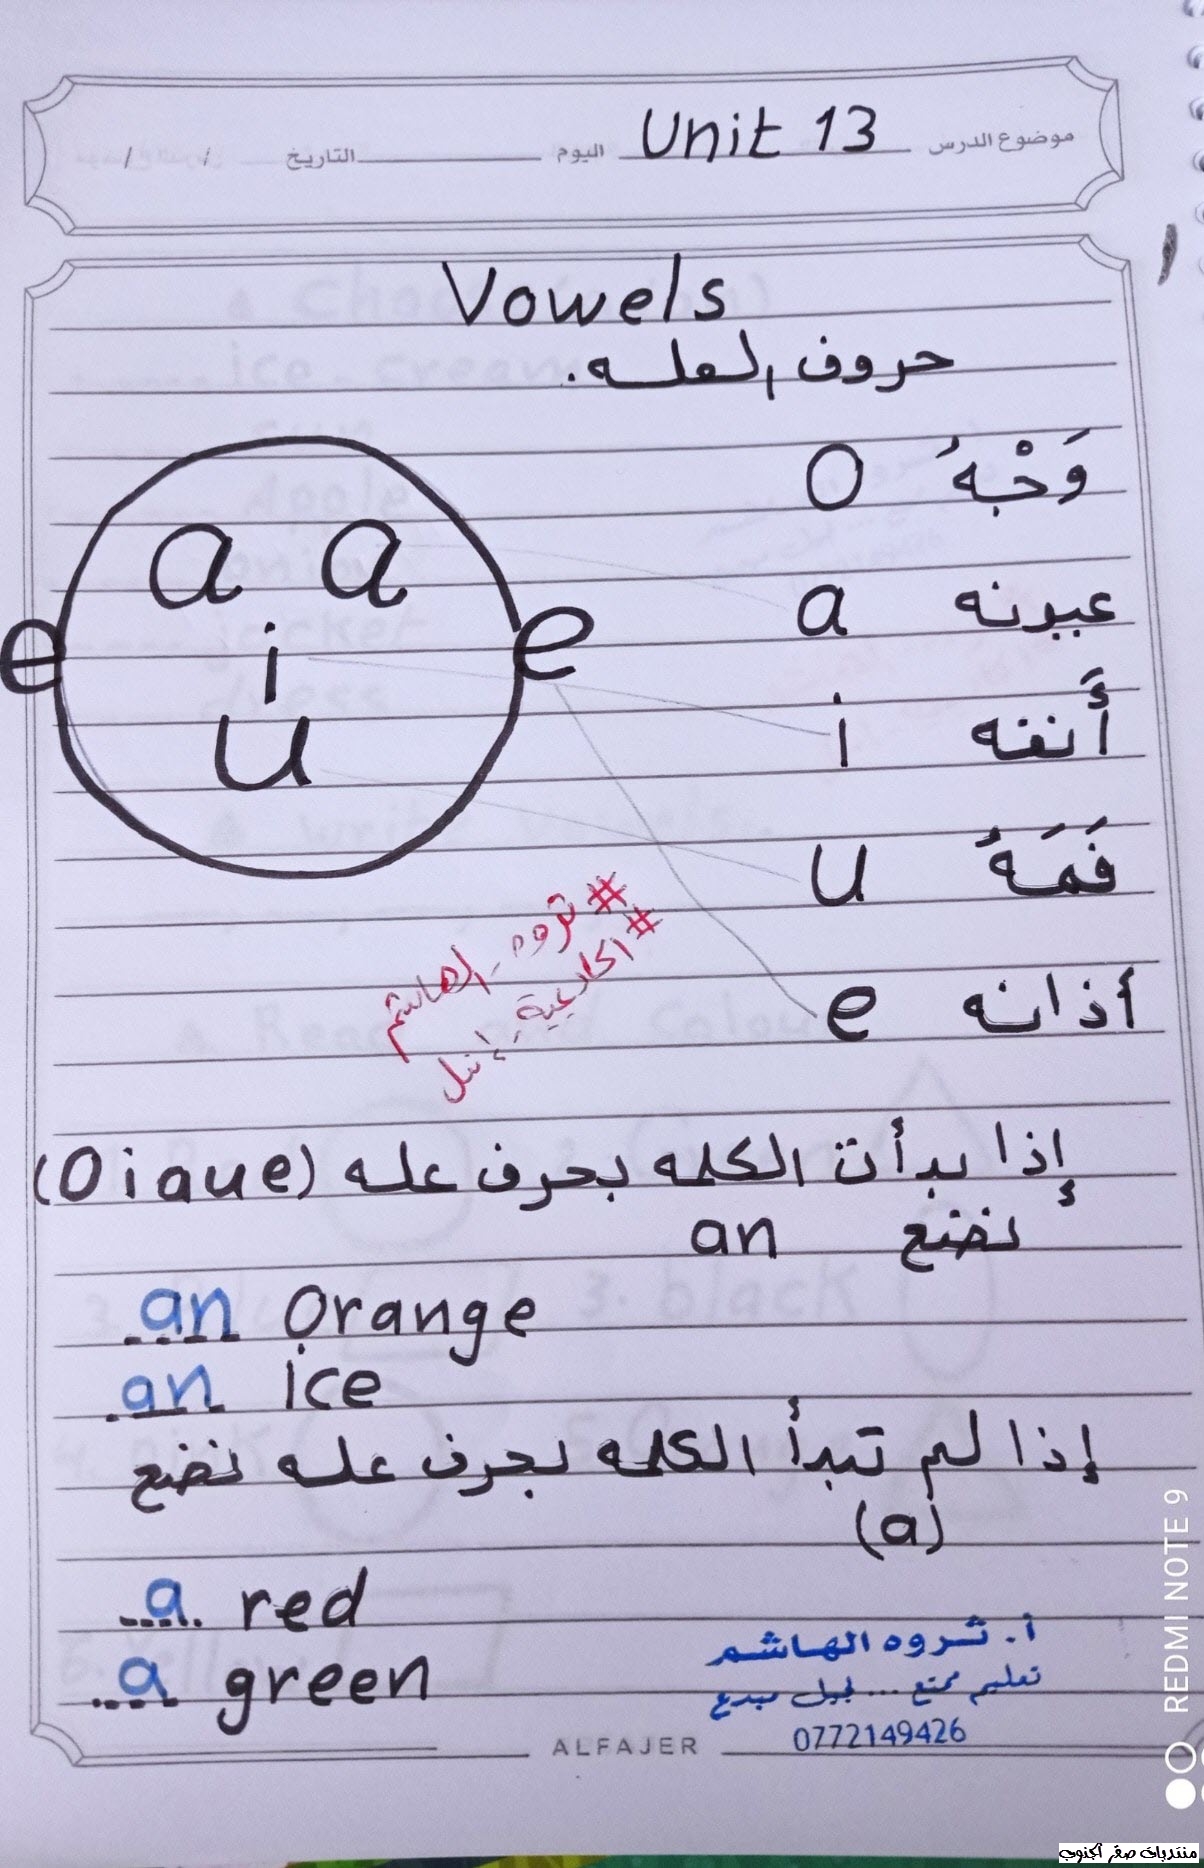 موضوع الدرس Unit 13 اليوم التاريخ / /
Vowels
حروف العله.
وَجْهُ O
عيونه a
أَنفه i
فَمَهُ u
أذانه e
a a
e i e
u
#ثروه_الهاشم
#اكاديمية_إبتل
إذا بدأت الكلمه بحرف عله (O i a u e)
نضع an
an Orange
an ice
إذا لم تبدأ الكلمه بحرف عله نضع
(a)
a red
a green
أ. ثروه الهاشم
تعليم ممتع ... لجيل مبدع
0772149426
ALFAJER
REDMI NOTE 9
منتديات صقر الجنوب